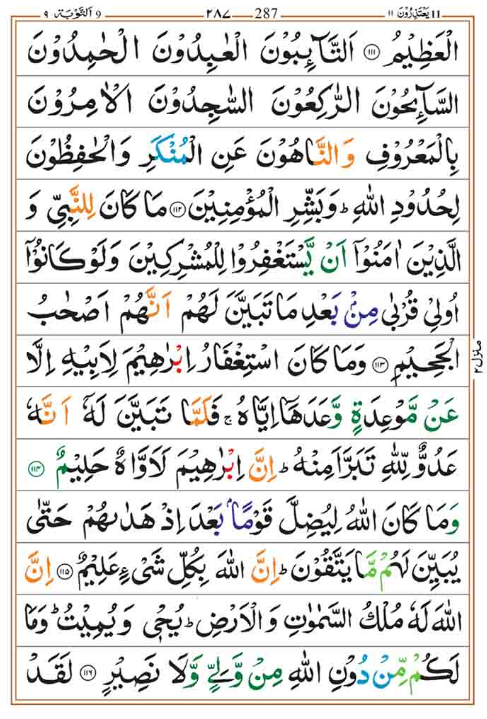 التوبة ۹ 9 ۲۸۷ 287 يعتذرون ۱۱ 11
الْعَظِيْمُ ۝۱۱۱ اَلتَّآئِبُوْنَ الْعٰبِدُوْنَ الْحٰمِدُوْنَ
السَّآئِحُوْنَ الرّٰكِعُوْنَ السّٰجِدُوْنَ الْاٰمِرُوْنَ
بِالْمَعْرُوْفِ وَالنَّاهُوْنَ عَنِ الْمُنْكَرِ وَالْحٰفِظُوْنَ
لِحُدُوْدِ اللّٰهِ ؕ وَبَشِّرِ الْمُؤْمِنِيْنَ ۝۱۱۲ مَا كَانَ لِلنَّبِيِّ وَ
الَّذِيْنَ اٰمَنُوْۤا اَنْ يَّسْتَغْفِرُوْا لِلْمُشْرِكِيْنَ وَلَوْ كَانُوْۤا
اُولِيْ قُرْبٰى مِنْۢ بَعْدِ مَا تَبَيَّنَ لَهُمْ اَنَّهُمْ اَصْحٰبُ
الْجَحِيْمِ ۝۱۱۳ وَمَا كَانَ اسْتِغْفَارُ اِبْرٰهِيْمَ لِاَبِيْهِ اِلَّا
عَنْ مَّوْعِدَةٍ وَّعَدَهَاۤ اِيَّاهُ ۚ فَلَمَّا تَبَيَّنَ لَهٗۤ اَنَّهٗ
عَدُوٌّ لِّلّٰهِ تَبَرَّاَ مِنْهُ ؕ اِنَّ اِبْرٰهِيْمَ لَاَوَّاهٌ حَلِيْمٌ ۝۱۱۴
وَمَا كَانَ اللّٰهُ لِيُضِلَّ قَوْمًۢا بَعْدَ اِذْ هَدٰىهُمْ حَتّٰى
يُبَيِّنَ لَهُمْ مَّا يَتَّقُوْنَ ؕ اِنَّ اللّٰهَ بِكُلِّ شَيْءٍ عَلِيْمٌ ۝۱۱۵ اِنَّ
اللّٰهَ لَهٗ مُلْكُ السَّمٰوٰتِ وَالْاَرْضِ ؕ يُحْيٖ وَيُمِيْتُ ؕ وَمَا
لَكُمْ مِّنْ دُوْنِ اللّٰهِ مِنْ وَّلِيٍّ وَّلَا نَصِيْرٍ ۝۱۱۶ لَقَدْ
منزل ۲